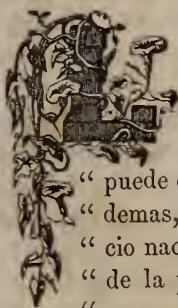 L
“ puede
“ demas,
“ cio nac
“ de la
“